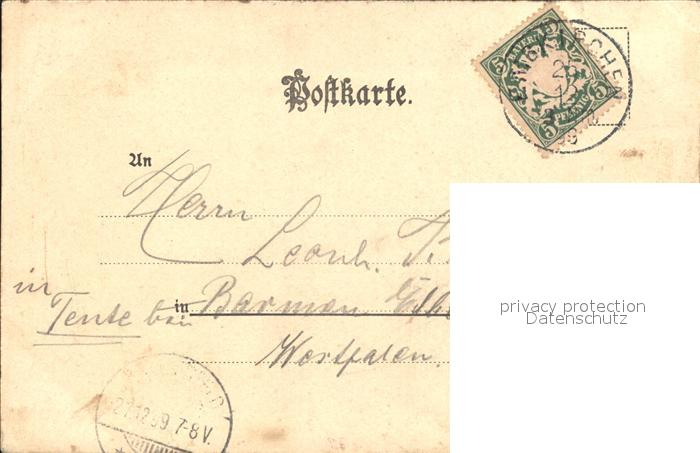 Postkarte.
BAYERN
5 5
5 PFENNIG 5
26
12
99
An
Herrn
Leonh.
in
in Barmen
Tente bei
Westfalen.
27.12.99. 7-8 V.
privacy protection
Datenschutz